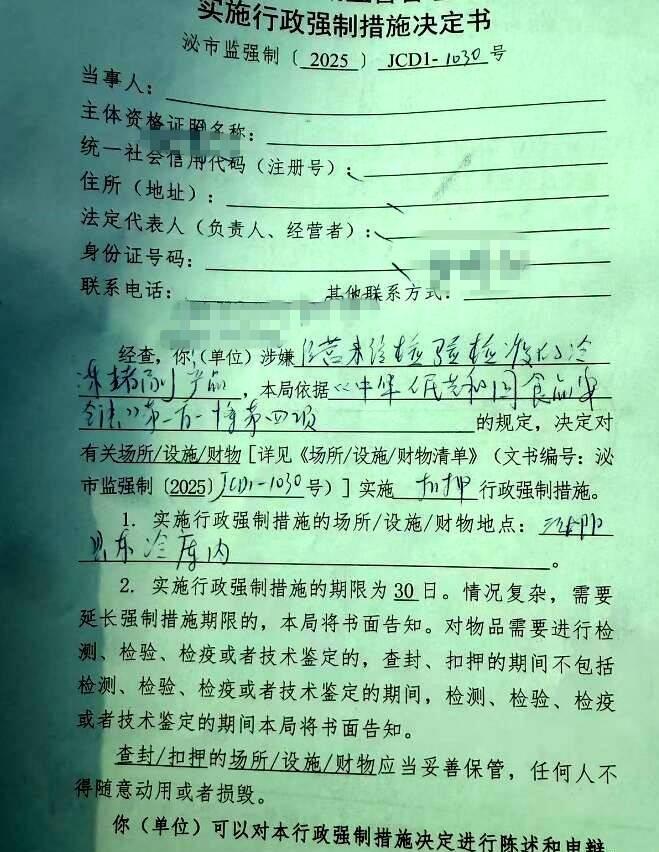 实施行政强制措施决定书
泌市监强制〔2025〕JCD1-1030号
当事人：
主体资格证照名称：
统一社会信用代码（注册号）：
住所（地址）：
法定代表人（负责人、经营者）：
身份证号码：
联系电话： 其他联系方式：
经查，你（单位）涉嫌经营未经检验检疫的冷
冻猪副产品，本局依据《中华人民共和国食品安
全法》第一百一十条第四项的规定，决定对
有关场所/设施/财物［详见《场所/设施/财物清单》（文书编号：泌
市监强制〔2025〕JCD1-1030号）］实施 扣押 行政强制措施。
1. 实施行政强制措施的场所/设施/财物地点：
冷库内。
2. 实施行政强制措施的期限为30日。情况复杂，需要
延长强制措施期限的，本局将书面告知。对物品需要进行检
测、检验、检疫或者技术鉴定的，查封、扣押的期间不包括
检测、检验、检疫或者技术鉴定的期间，检测、检验、检疫
或者技术鉴定的期间本局将书面告知。
查封/扣押的场所/设施/财物应当妥善保管，任何人不
得随意动用或者损毁。
你（单位）可以对本行政强制措施决定进行陈述和申辩